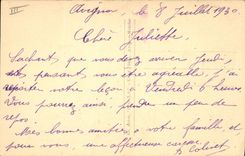 Avignon, le 8 Juillet 1930
Chère Juliette
Sachant que vous devez arriver Jeudi,
et pensant vous être agréable, j'ai
reporté notre leçon à Vendredi 6 heures
Vous pourrez ainsi prendre un peu de
repos.
Mes bonnes amitiés à votre famille et
pour vous, une affectueuse caresse